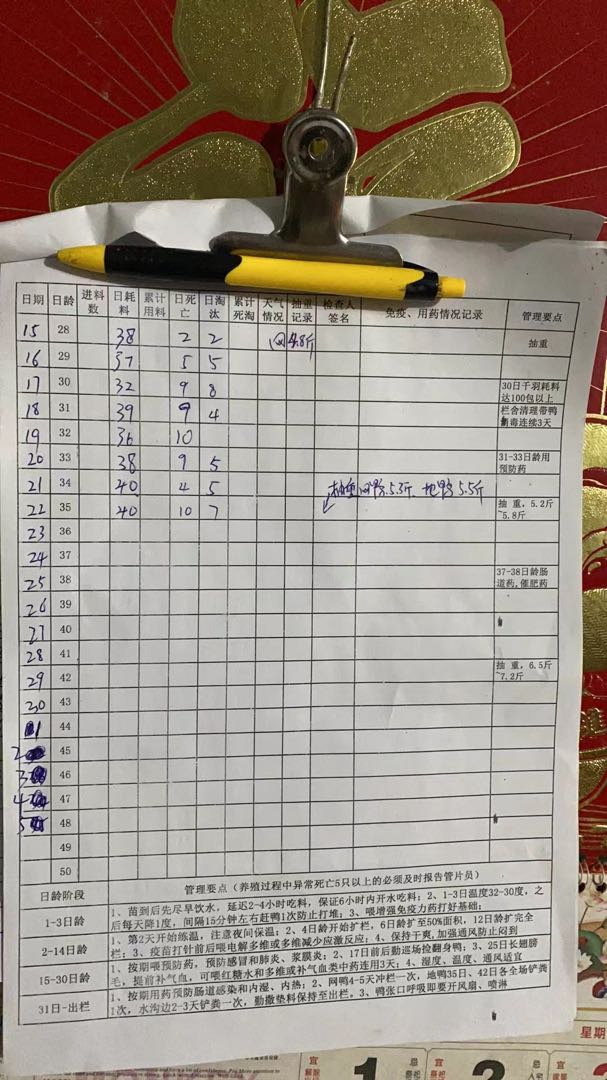 日期 日龄 进料数 日耗料 累计用料 日死亡 日淘汰 累计死淘 天气情况 抽重记录 检查人签名 免疫、用药情况记录 管理要点
15 28 38 2 2 网4.8斤 抽重
16 29 37 5 5
17 30 32 9 8 30日千羽耗料达100包以上
18 31 39 9 4 栏舍清理带鸭消毒连续3天
19 32 36 10
20 33 38 9 5 31-33日龄用预防药
21 34 40 4 5 抽重网鸭5.3斤 地鸭5.5斤
22 35 40 10 7 抽重，5.2斤~5.8斤
23 36
24 37
25 38 37-38日龄肠道药,催肥药
26 39
27 40
28 41
29 42 抽重，6.5斤~7.2斤
30 43
1 44
2 45
3 46
4 47
5 48
49
50
日龄阶段 管理要点（养殖过程中异常死亡5只以上的必须及时报告管片员）
1-3日龄 1、苗到后先尽早饮水，延迟2-4小时吃料，保证6小时内开水吃料；2、1-3日温度32-30度，之
后每天降1度，间隔15分钟左右赶鸭1次防止打堆；3、喂增强免疫力药打好基础；
2-14日龄 1、第2天开始练温，注意夜间保温；2、4日龄开始扩栏，6日龄扩至50%面积，12日龄扩完全
栏；3、疫苗打针前后喂电解多维或多维减少应激反应；4、保持干爽,加强通风防止闷到
15-30日龄 1、按期喂预防药，预防感冒和肺炎、浆膜炎；2、17日前后勤巡场捡翻身鸭；3、25日长翅膀
毛，提前补气血，可喂红糖水和多维或补气血类中药连用3天；4、湿度、温度、通风适宜
31日-出栏 1、按期用药预防肠道感染和内湿、内热；2、网鸭4-5天冲栏一次，地鸭35日、42日各全场铲粪
1次，水沟边2-3天铲粪一次，勤撒垫料保持至出栏。3、鸭张口呼吸即要开风扇、喷淋
星期
宜 1 忌 宜 2 忌 宜